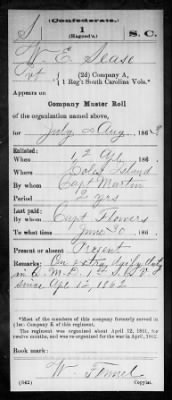 (Confederate.)
S 1 S. C.
(Hagood's.)
W. E. Sease
Pvt, (2d) Company A,
1 Reg't South Carolina Vols.*
Appears on
Company Muster Roll
of the organization named above,
for July & Aug, 186
Enlisted:
When 12 Apl, 186
Where Coles Island
By whom Capt Martin
Period 2 yrs
Last paid:
By whom Capt Flowers
To what time June 30, 186
Present or absent Present
Remarks: On extra daily duty
in
since Apl 12, 1862
*Most of the members of this company formerly served in
(1st) Company E of this regiment.
The regiment was organized about April 12, 1861, for
twelve months, and was re-organized for the war in April, 1862.
Book mark:
W.
(642) Copyist.